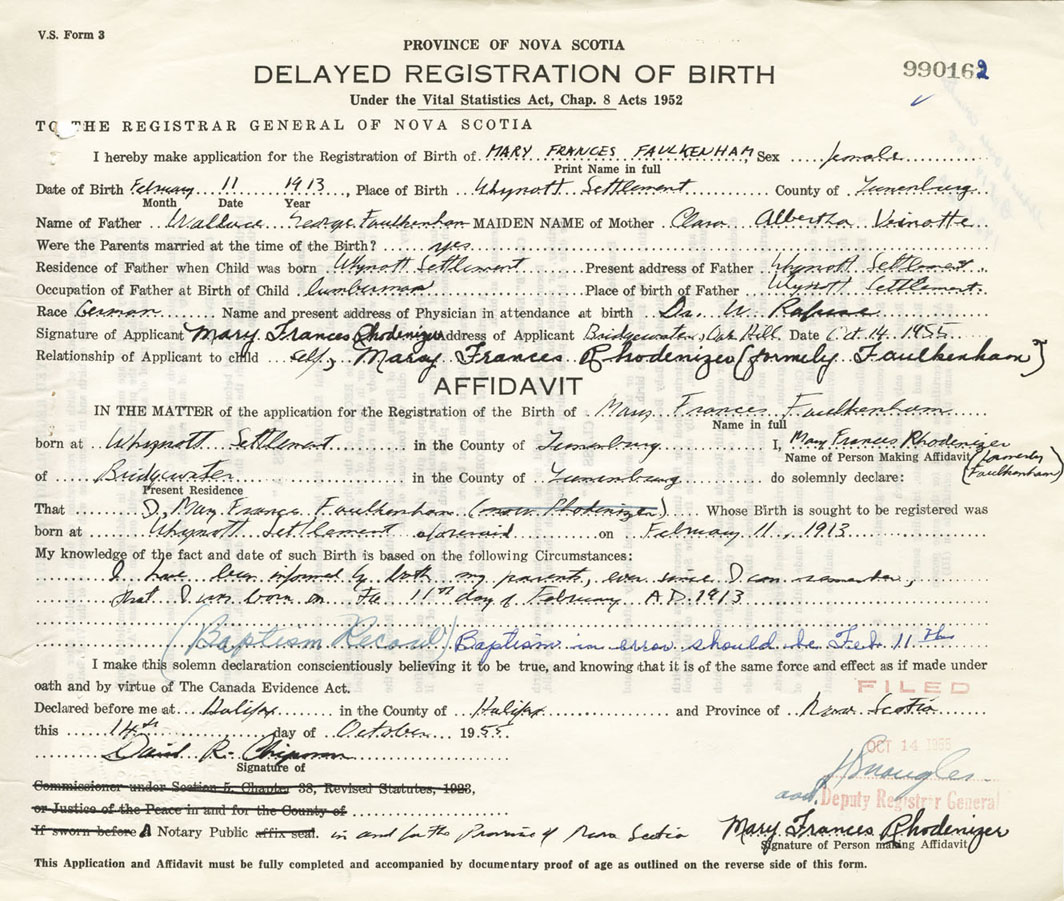 V.S. Form 3
PROVINCE OF NOVA SCOTIA
DELAYED REGISTRATION OF BIRTH
990162
Under the Vital Statistics Act, Chap. 8 Acts 1952
TO THE REGISTRAR GENERAL OF NOVA SCOTIA
I hereby make application for the Registration of Birth of MARY FRANCES FAULKENHAM, Sex female
Print Name in full
Date of Birth February 11 1913, Place of Birth Whynott Settlement County of Lunenburg
Month Date Year
Name of Father Wallace George Faulkenham MAIDEN NAME of Mother Clara Albertha Veinotte
Were the Parents married at the time of the Birth? yes
Residence of Father when Child was born Whynott Settlement Present address of Father Whynott Settlement
Occupation of Father at Birth of Child lumberman Place of birth of Father Whynott Settlement
Race German Name and present address of Physician in attendance at birth Dr. W. Rafuse
Signature of Applicant Mary Frances Rhodenizer Address of Applicant Bridgewater, Oak Hill Date Oct. 14 1955
Relationship of Applicant to child self, Mary Frances Rhodenizer (formely Faulkenham)
AFFIDAVIT
IN THE MATTER of the application for the Registration of the Birth of Mary Frances Faulkenham
Name in full
born at Whynott Settlement in the County of Lunenburg I, Mary Frances Rhodenizer
Name of Person Making Affidavit (formerly Faulkenham)
of Bridgewater in the County of Lunenburg do solemnly declare:
Present Residence
That I, Mary Frances Faulkenham (now Rhodenizer) Whose Birth is sought to be registered was
born at Whynott Settlement aforesaid on February 11, 1913
My knowledge of the fact and date of such Birth is based on the following Circumstances:
I have been informed by both my parents, ever since I can remember,
that I was born on the 11th day of February A.D. 1913
(Baptism Record) Baptism in error should be Feb. 11th
I make this solemn declaration conscientiously believing it to be true, and knowing that it is of the same force and effect as if made under
oath and by virtue of The Canada Evidence Act.
FILED
Declared before me at Halifax in the County of Halifax and Province of Nova Scotia
this 14th day of October 1955
OCT 14 1955
David R. Chipman
Signature of
Commissioner under Section 5, Chapter 33, Revised Statutes, 1923,
Deputy Registrar General
or Justice of the Peace in and for the County of
If sworn before A Notary Public affix seal. in and for the Province of Nova Scotia
Mary Frances Rhodenizer
Signature of Person making Affidavit
This Application and Affidavit must be fully completed and accompanied by documentary proof of age as outlined on the reverse side of this form.